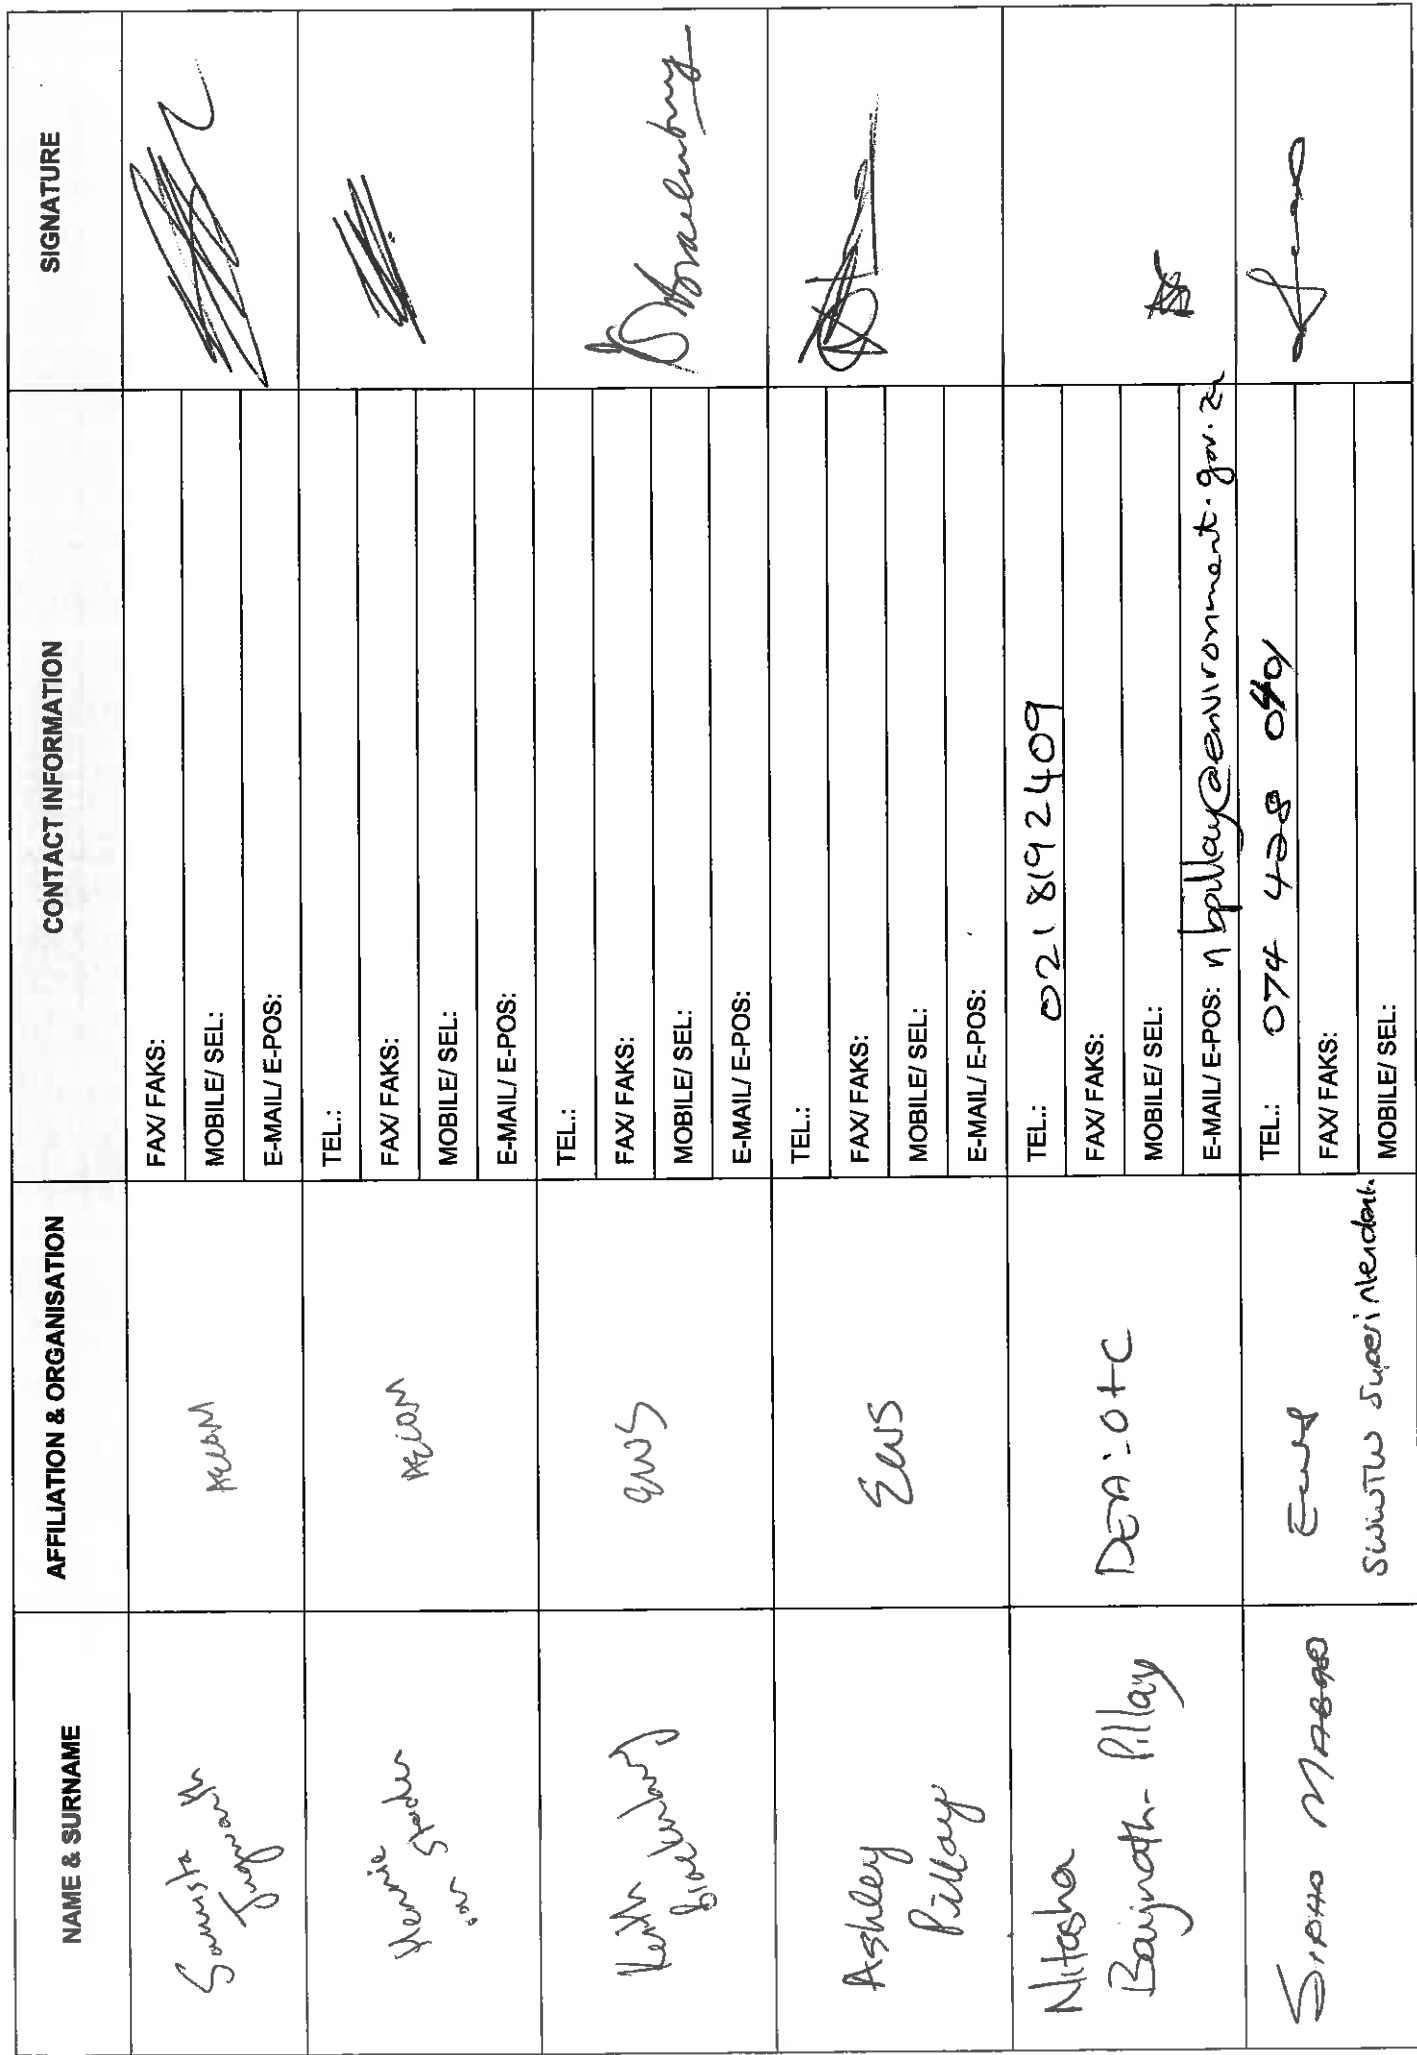 NAME & SURNAME
AFFILIATION & ORGANISATION
CONTACT INFORMATION
SIGNATURE
AECOM
FAX/ FAKS:
MOBILE/ SEL:
E-MAIL/ E-POS:
Hennie
van Stader
AECOM
TEL.:
FAX/ FAKS:
MOBILE/ SEL:
E-MAIL/ E-POS:
EWS
TEL.:
FAX/ FAKS:
MOBILE/ SEL:
E-MAIL/ E-POS:
Ashley
Pillay
EWS
TEL.:
FAX/ FAKS:
MOBILE/ SEL:
E-MAIL/ E-POS:
Nitasha
Baijnath-Pillay
DEA:O+C
TEL.: 021 8192409
FAX/ FAKS:
MOBILE/ SEL:
E-MAIL/ E-POS: nbpillay@environment.gov.za
SIPHO
SWWTW Superintendent.
TEL.: 074 428
FAX/ FAKS:
MOBILE/ SEL: